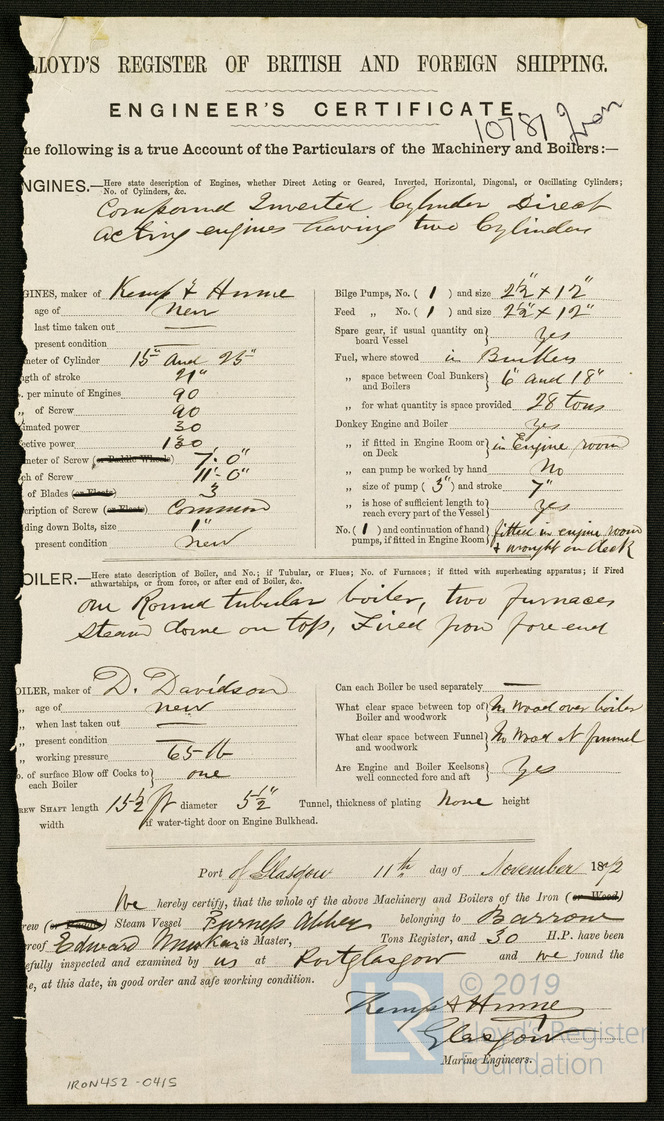 LLOYD'S REGISTER OF BRITISH AND FOREIGN SHIPPING.
ENGINEER'S CERTIFICATE.
10781 Iron
he following is a true Account of the Particulars of the Machinery and Boilers:—
NGINES.—Here state description of Engines, whether Direct Acting or Geared, Inverted, Horizontal, Diagonal, or Oscillating Cylinders;
No. of Cylinders, &c.
Compound Inverted Cylinder Direct
acting engines having two Cylinders
GINES, maker of Kemp & Hume
age of New
last time taken out —
present condition —
meter of Cylinder 15" and 25"
ngth of stroke 21"
. per minute of Engines 90
„ of Screw 90
imated power 30
ective power 130
meter of Screw (or Paddle Wheels) 7'-0"
ch of Screw 11'-0"
of Blades (or Floats) 3
cription of Screw (or Floats) Common
ding down Bolts, size 1"
present condition new
Bilge Pumps, No. ( 1 ) and size 2½" x 12"
Feed „ No. ( 1 ) and size 2½" x 12"
Spare gear, if usual quantity on
board Vessel yes
Fuel, where stowed in Bunkers
„ space between Coal Bunkers
and Boilers 6" and 18"
„ for what quantity is space provided 28 tons
Donkey Engine and Boiler Yes
„ if fitted in Engine Room or
on Deck in Engine room
„ can pump be worked by hand No
„ size of pump ( 3" ) and stroke 7"
„ is hose of sufficient length to
reach every part of the Vessel yes
No. ( 1 ) and continuation of hand
pumps, if fitted in Engine Room fitted in engine room
& wrought on deck
OILER.—Here state description of Boiler, and No.; if Tubular, or Flues; No. of Furnaces; if fitted with superheating apparatus; if Fired
athwartships, or from force, or after end of Boiler, &c.
one Round tubular boiler, two furnaces
steam dome on top, Fired from fore end
OILER, maker of D. Davidson
„ age of new
„ when last taken out —
„ present condition —
„ working pressure 65 lb
o. of surface Blow off Cocks to
each Boiler one
Can each Boiler be used separately —
What clear space between top of
Boiler and woodwork No wood over boiler
What clear space between Funnel
and woodwork No wood at funnel
Are Engine and Boiler Keelsons
well connected fore and aft Yes
REW SHAFT length 15½ ft diameter 5½" Tunnel, thickness of plating None height
width if water-tight door on Engine Bulkhead.
Port of Glasgow 11th day of November 1872
We hereby certify, that the whole of the above Machinery and Boilers of the Iron (or Wood)
rew (or Paddle) Steam Vessel Furness Abbey belonging to Barrow
ereof Edward is Master, Tons Register, and 30 H.P. have been
efully inspected and examined by us at Portglasgow and we found the
e, at this date, in good order and safe working condition.
Kemp & Hume
Glasgow
Marine Engineers.
IRON452-0415
LR
© 2019
Lloyd's Register
Foundation